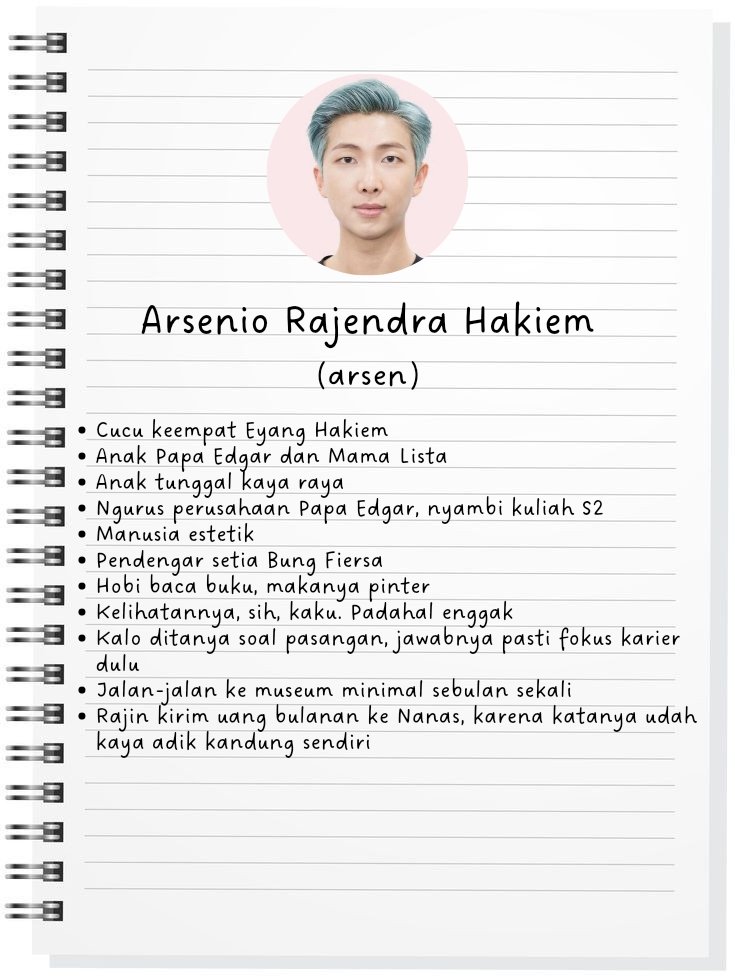 Arsenio Rajendra Hakiem
(arsen)
• Cucu keempat Eyang Hakiem
• Anak Papa Edgar dan Mama Lista
• Anak tunggal kaya raya
• Ngurus perusahaan Papa Edgar, nyambi kuliah S2
• Manusia estetik
• Pendengar setia Bung Fiersa
• Hobi baca buku, makanya pinter
• Kelihatannya, sih, kaku. Padahal enggak
• Kalo ditanya soal pasangan, jawabnya pasti fokus karier
dulu
• Jalan-jalan ke museum minimal sebulan sekali
• Rajin kirim uang bulanan ke Nanas, karena katanya udah
kaya adik kandung sendiri